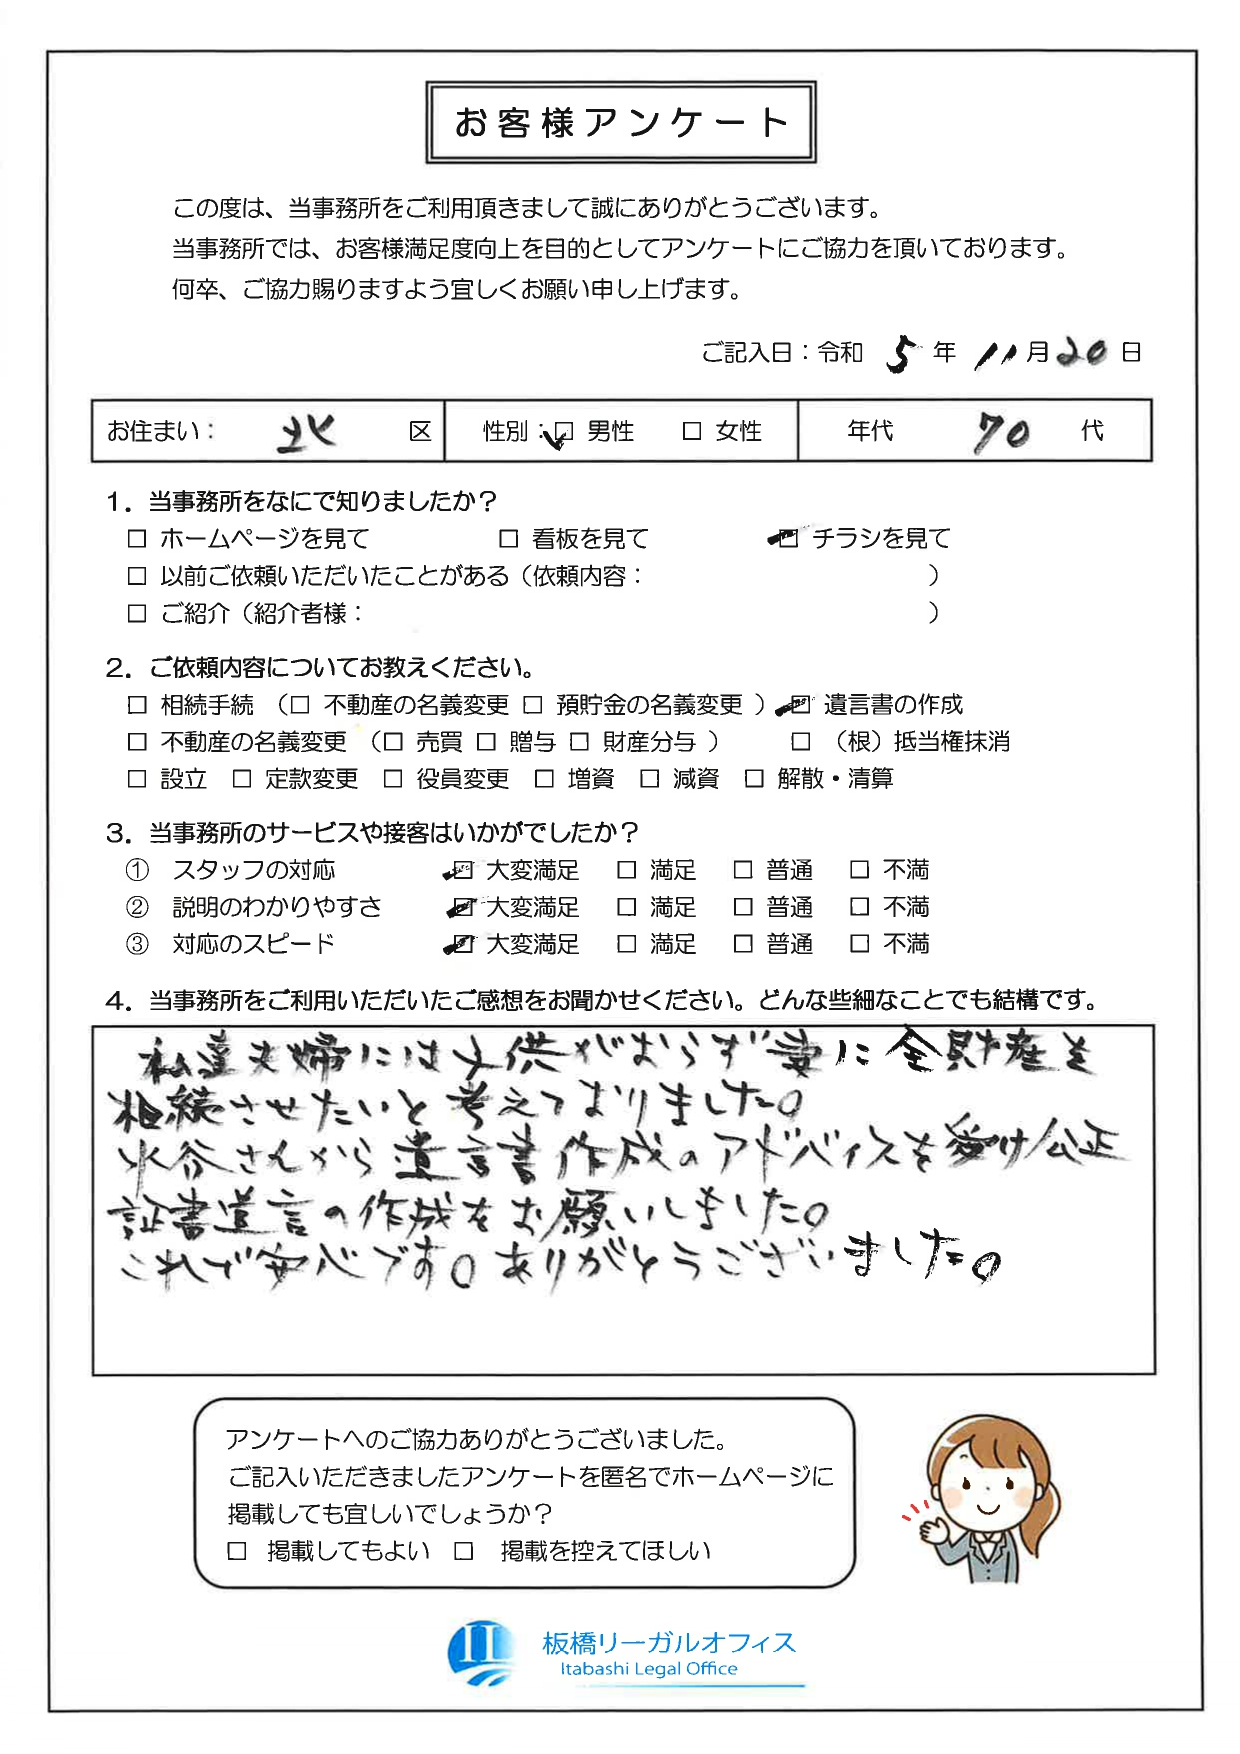 お客様アンケート
この度は、当事務所をご利用頂きまして誠にありがとうございます。
当事務所では、お客様満足度向上を目的としてアンケートにご協力を頂いております。
何卒、ご協力賜りますよう宜しくお願い申し上げます。
ご記入日：令和 5 年 11 月 20 日
お住まい： 北 区 性別：☑ 男性 □ 女性 年代 70 代
1．当事務所をなにで知りましたか？
□ ホームページを見て □ 看板を見て ☑ チラシを見て
□ 以前ご依頼いただいたことがある（依頼内容： ）
□ ご紹介（紹介者様： ）
2．ご依頼内容についてお教えください。
□ 相続手続 （□ 不動産の名義変更 □ 預貯金の名義変更 ） ☑ 遺言書の作成
□ 不動産の名義変更 （□ 売買 □ 贈与 □ 財産分与 ） □ （根）抵当権抹消
□ 設立 □ 定款変更 □ 役員変更 □ 増資 □ 減資 □ 解散・清算
3．当事務所のサービスや接客はいかがでしたか？
① スタッフの対応 ☑ 大変満足 □ 満足 □ 普通 □ 不満
② 説明のわかりやすさ ☑ 大変満足 □ 満足 □ 普通 □ 不満
③ 対応のスピード ☑ 大変満足 □ 満足 □ 普通 □ 不満
4．当事務所をご利用いただいたご感想をお聞かせください。どんな些細なことでも結構です。
私達夫婦には子供がおらず妻に全財産を
相続させたいと考えておりました。
水谷さんから遺言書作成のアドバイスを受け公正
証書遺言の作成をお願いしました。
これで安心です。ありがとうございました。
アンケートへのご協力ありがとうございました。
ご記入いただきましたアンケートを匿名でホームページに
掲載しても宜しいでしょうか？
□ 掲載してもよい □ 掲載を控えてほしい
板橋リーガルオフィス
Itabashi Legal Office